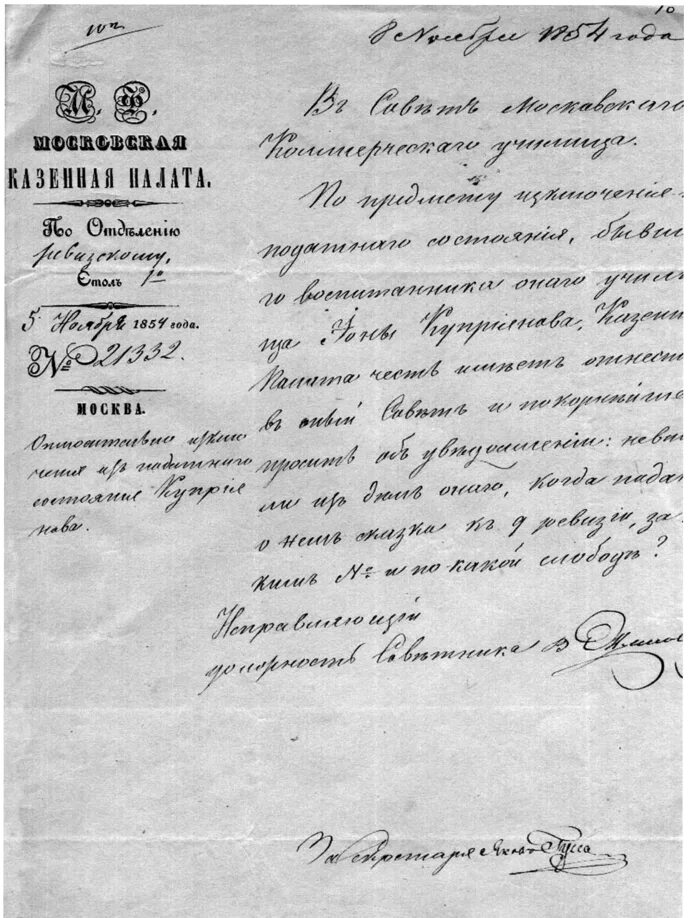 8 Ноября 1854 года
М. Ф.
МОСКОВСКАЯ
КАЗЕННАЯ ПАЛАТА.
По Отдѣленію
ревизскому,
Столъ 1º
5 Ноября 1854 года.
№ 21332.
МОСКВА.
Относительно исклю
ченія изъ податнаго
состоянія Купрія
нова.
Въ Совѣтъ Московскаго
Коммерческаго училища.
По предмету исключенія
податнаго состоянія, бывш
го воспитанника онаго учил
ща Іоны Купріянова, Казенн
Палата честь имѣетъ отнест
въ оный Совѣтъ и покорнѣйше
проситъ объ увѣдомленіи: невид
ли изъ дѣлъ онаго, когда подан
о немъ сказка къ 9 ревизіи, за
кимъ № и по какой слободѣ?
Исправляющій
должность Совѣтника
За Секретаря